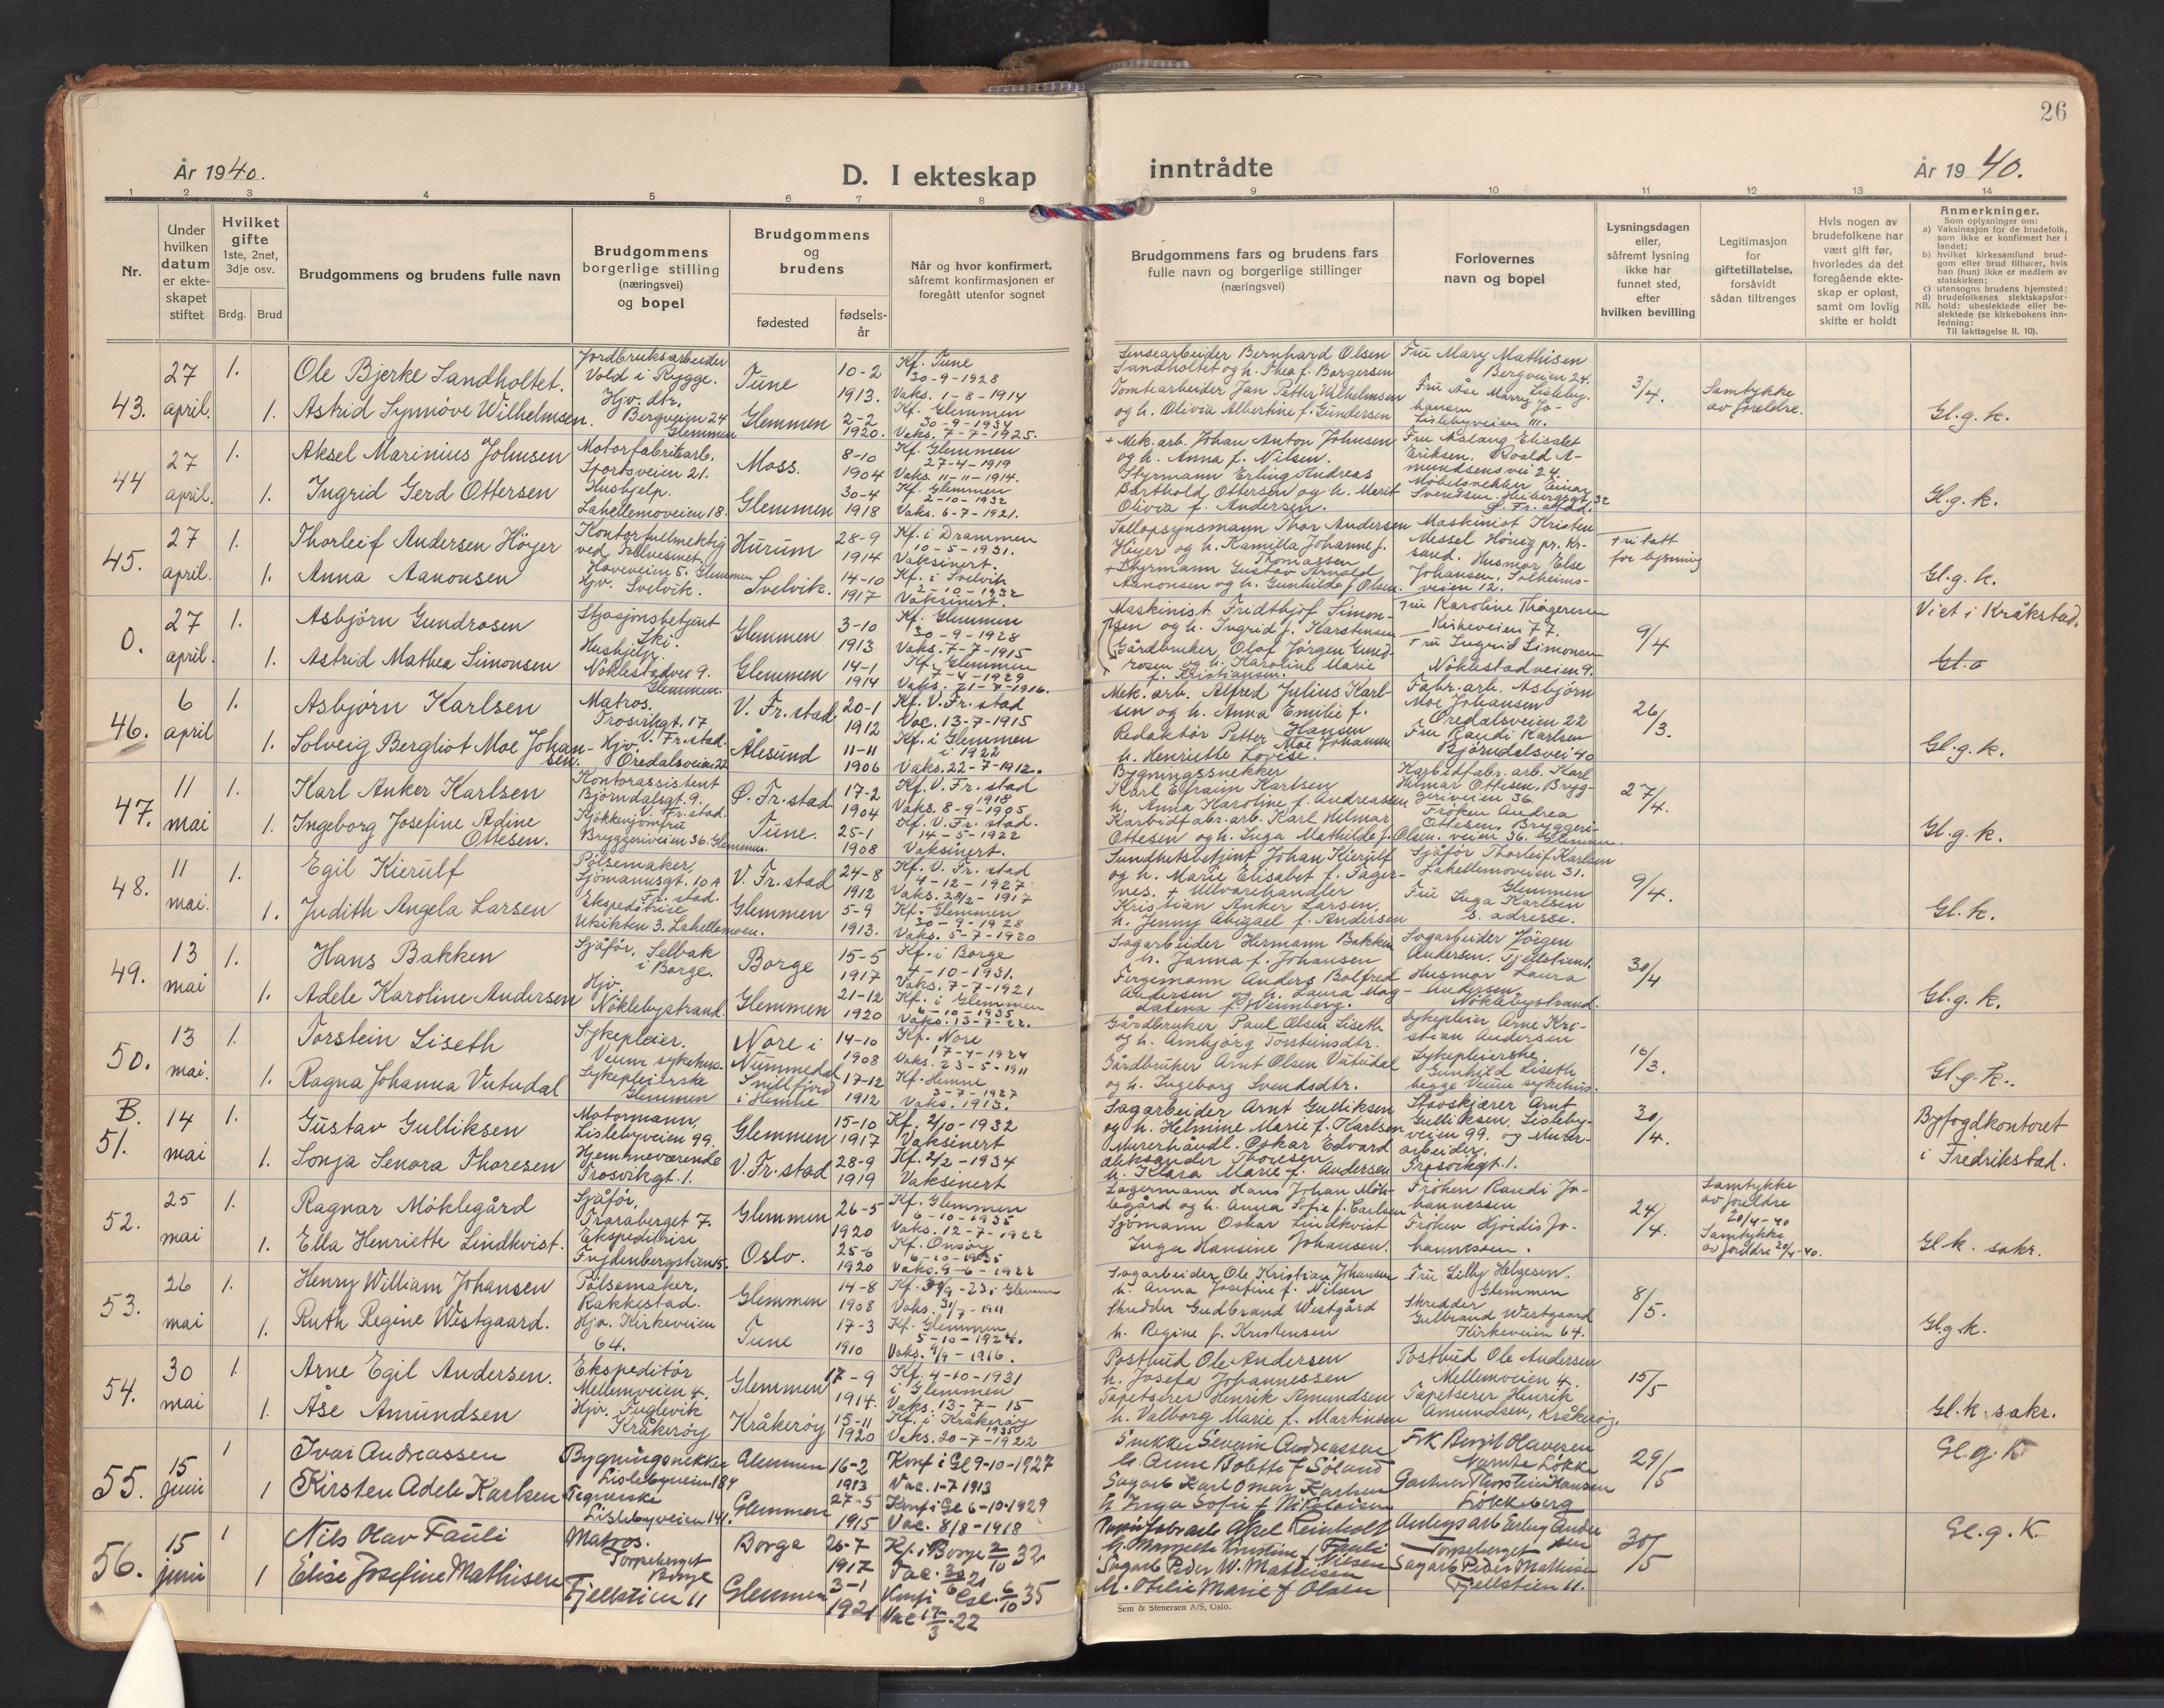 26
År 1940.
D. I ekteskap inntrådte
År 1940.
1 2 3 4 5 6 7 8 9 10 11 12 13 14
Nr.
Under hvilken datum er ekteskapet stiftet
Hvilket gifte
1ste, 2net, 3dje osv.
Brdg. Brud
Brudgommens og brudens fulle navn
Brudgommens borgerlige stilling (næringsvei) og bopel
Brudgommens og brudens
fødested
fødselsår
Når og hvor konfirmert, såfremt konfirmasjonen er foregått utenfor sognet
Brudgommens fars og brudens fars fulle navn og borgerlige stillinger (næringsvei)
Forlovernes navn og bopel
Lysningsdagen eller, såfremt lysning ikke har funnet sted, efter hvilken bevilling
Legitimasjon for giftetillatelse, forsåvidt sådan tiltrenges
Hvis nogen av brudefolkene har vært gift før, hvorledes da det foregående ekteskap er opløst, samt om lovlig skifte er holdt
Anmerkninger.
Som oplysninger om:
a) Vaksinasjon for de brudefolk, som ikke er konfirmert her i landet;
b) hvilket kirkesamfund brudgom eller brud tilhører, hvis han (hun) ikke er medlem av statskirken;
c) utensogns brudens hjemsted;
d) brudefolkenes slektskapsforhold: ubeslektede eller beslektede (se kirkebokens innledning:
NB.
Til iakttagelse II. 10).
43. 27 april. 1. 1.
Ole Bjerke Sandholtet.
Jordbruksarbeider
Vold i Rygge.
Tune
10-2 1913.
Kf. Tune
30-9-1928
Vaks. 1-8-1914
Astrid Synnöve Wilhelmsen.
Hjv. dtr.
Bergveien 24
Glemmen
Glemmen
2-2 1920.
Kf. Glemmen
30-9-1934
Vaks. 7-7-1925.
Lensearbeider Bernhard Olsen
Sandholtet og h. Thea f. Borgersen
Tomtearbeider Jan Petter Wilhelmsen
og h. Olivia Albertine f. Gundersen
Fru Mary Mathisen
Bergveien 24.
Fru Åse Marry Johansen
Lislebyveien 111.
3/4.
Samtykke
av foreldre.
Gl.g.k.
44 27 april. 1. 1.
Aksel Marinius Johnsen
Motorfabrikarb.
Sportsveien 21.
Moss.
8-10 1904
Kf. Glemmen
27-4-1919
Vaks. 11-11-1914.
Ingrid Gerd Ottersen
Hushjelp.
Lahellemoveien 18.
Glemmen
30-4 1918
Kf. Glemmen
2-10-1932
Vaks. 6-7-1921.
+ Mek. arb. Johan Anton Johnsen
og h. Anna f. Nilsen.
Styrmann Erling Andreas
Barthold Ottersen og h. Marit
Olivia f. Andersen.
Fru Aslaug Elisabet
Eriksen. Roald Amundsensvei 24.
Møbelsnekker Einar
Svendsen. Heibergsgt. 32
Ø. Fr. stad.
Gl.g.k.
45. 27 april. 1. 1.
Thorleif Andersen Höyer
Kontorfullmektig
ved Tollvesenet
Haveveien 5. Glemmen
Hurum
28-9 1914
Kf. i Drammen
10-5-1931.
Vaksinert.
Anna Aanonsen
Hjv. Svelvik.
Svelvik.
14-10 1917
Kf. i Svelvik
2-10-1932
Vaksinert.
Tollopsynsmann Thor Andersen
Höyer og h. Kamilla Johanne f.
Thomassen
+ Styrmann Gustav Arnold
Aanonsen og h. Gunhilde f. Olsen.
Maskinist Kristen
Messel Hönig pr. Kr-
sand. Husmor Else
Johansen. Solheimsveien 12.
Fritatt
for lysning
Gl.g.k.
0. 27 april. 1. 1.
Asbjörn Gundrosen
Stasjonsbetjent
Ski.
Glemmen
3-10 1913
Kf. Glemmen
30-9-1928
Vaks. 7-7-1915
Astrid Mathea Simonsen
Hushjelp.
Nöklestadvei 9.
Glemmen.
Glemmen
14-1 1914
Kf. Glemmen
7-4-1929
Vaks. 21-7-1916.
Maskinist Fridthjof Simon-
sen og h. Ingrid f. Karstensen
Gårdbruker, Olaf Jörgen Gund-
rosen og h. Karoline Marie
f. Kristiansen.
Fru Karoline Thögersen
Kirkeveien 77.
Fru Ingrid Simonsen
Nöklestadveien 9.
9/4
Viet i Kråkstad.
46. 6 april 1. 1.
Asbjörn Karlsen
Matros.
Trosvikgt. 17
V. Fr. stad.
V. Fr. stad
20-1 1912
Kf. V. Fr. stad
Vac. 13-7-1915
Solveig Bergliot Moe Johan-
sen.
Hjv.
Oredalsveien 22
Ålesund
11-11 1906
Kf. i Glemmen
i 1922
Vaks. 22-7-1912.
Mek. arb. Alfred Julius Karl-
sen og h. Anna Emilie f.
Hansen
Redaktör Petter Moe Johansen
h. Henriette Lovise.
Fabr. arb. Asbjörn
Moe Johansen
Oredalsveien 22
Fru Randi Karlsen
Björndalsvei 40
26/3.
Gl.g.k.
47. 11 mai 1. 1.
Karl Anker Karlsen
Kontorassistent
Björndalsgt. 9.
V. Fr. stad.
Ø. Fr. stad
17-2 1904
Kf. V. Fr. stad
1918
Vaks. 8-9-1905
Ingeborg Josefine Adine
Ottesen.
Kjökkenjomfru
Bryggeriveien 36. Glemmen.
Tune.
25-1 1908
Kf. V. Fr. stad.
14-5-1922
Vaksinert.
Bygningssnekker
Karl Efraim Karlsen
h. Anna Karoline f. Andreassen
Karbidfabr. arb. Karl Helmar
Ottesen og h. Inga Mathilde f. Olsen.
Karbidfabr. arb. Karl
Helmar Ottesen. Bryggeriveien 36.
Fröken Andrea
Ottesen. Bryggeri-
veien 36. Glemmen.
27/4.
Gl.g.k.
48. 11 mai. 1. 1.
Egil Kierulf
Pölsemaker,
Sjömannsgt. 10A
Fr. stad.
V. Fr. stad
24-8 1912
Kf. V. Fr. stad
4-12-1927
Vaks. 28/2-1917
Judith Angela Larsen
Ekspeditrise
Utsikten 3. Lahellemoen.
Glemmen
5-9 1913.
Kf. Glemmen
30-9-1928
Vaks. 5-7-1920
Sundhetsbetjent Johan Kierulf
og h. Marie Elisabet f. Fager-
nes. + Ullvarehandler
Kristian Anker Larsen,
h. Jenny Abigael f. Andersen
Sjåfør Thorleif Karlsen
Lahellemoveien 31.
Glemmen
Fru Inga Karlsen
S. adresse.
9/4.
Gl.k.
49. 13 mai 1. 1.
Hans Bakken
Sjåför, Selbak
i Borge.
Borge
15-5 1917
Kf. i Borge
4-10-1931.
Vaks. 7-7-1921
Adele Karoline Andersen
Hjv.
Nöklebystrand.
Glemmen
21-12 1920
Kf. i Glemmen
6-10-1935
Vaks. 13-7-22.
Sagarbeider Hermann Bakken
h. Janna f. Johansen
Fergemann Anders Bolfred
Andersen og h. Laura Mag-
dalena f. Wennberg.
Sagarbeider Jörgen
Andersen. Fjellstien 1.
Husmor Laura
Andersen.
Nöklebystrand.
30/4
Gl.g.k.
50. 13 mai. 1. 1.
Torstein Liseth
Sykepleier.
Veum sykehus.
Nore i
Nummedal
14-10 1908
Kf. Nore
17-4-1924
Vaks. 23-5-1911
Ragna Johanna Vutudal
Sykepleierske
Glemmen
Snillfjord
i Hemne
17-12 1912
Kf. Hemne
3-7-1927
Vaks. 1913.
Gårdbruker Paul Olsen Liseth
og h. Ambjörg Torsteinsdtr.
Gårdbruker Arnt Olsen Vutudal
og h. Ingeborg Svendsdtr.
Sykepleier Arne Kri-
stian Andersen
Sykepleierske
Gunhild Liseth
begge Veum sykehus.
16/3.
Gl.g.k.
B. 51. 14 mai 1. 1.
Gustav Gulliksen
Motormann,
Lislebyveien 99.
Glemmen
15-10 1917
Kf. 2/10-1932
Vaksinert
Sonja Senora Thoresen
Hjemmeværende
Trosvikgt. 1.
V. Fr. stad
28-9 1919
Kf. 2/2-1934
Vaksinert
Sagarbeider Arnt Gulliksen
og h. Helmine Marie f. Karlsen
Murerhåndl. Oskar Edvard
Aleksander Thoresen
h. Klara Marie f. Andersen
Stavskjærer Arnt
Gulliksen, Lisleby-
veien 99. og Murer-
arbeider.
Trosvikgt. 1.
30/4.
Byfogdkontoret
i Fredrikstad.
52. 25 mai 1. 1.
Ragnar Möklegård
Sjåför,
Traraberget 7.
Glemmen
26-5 1920
Kf. Glemmen
6-10-1935
Vaks. 12-7-1922
Ella Henriette Lindkvist.
Ekspeditrise
Oslo.
25-6 1920
Kf. Onsöy
6-10-1935
Vaks. 9-6-1922
Lagermann Hans Johan Mök-
legård og h. Anna Sofie f. Carlsen
Sjömann Oskar Lindkvist
Inga Hansine Johansen.
Fröken Randi Jo-
hannessen
Fröken Hjördis Jo-
hannessen.
24/4.
Samtykke
av foreldre
20/4-40
Samtykke
av foreldre 20/4-40.
Gl.k. sakr.
53. 26 mai 1. 1.
Henry William Johansen
Pölsemaker.
Rakkestad.
Glemmen
14-8 1908
Kf. 30/9-23 i Glemmen
Vaks. 31/7-1911
Ruth Regine Westgaard.
Hjv. Kirkeveien
64.
Tune
17-3 1910
Kf. Glemmen
5-10-1924.
Vaks. 9/9-1916.
Sagarbeider Ole Kristian Johansen
h. Anna Josefine f. Nilsen
Skredder Gudbrand Westgård
h. Regine f. Kristensen
Fru Lilly Helgesen.
Glemmen
Skredder
Gulbrand Westgaard
Kirkeveien 64.
8/5.
Gl.g.k.
54. 30 mai 1. 1.
Arne Egil Andersen.
Ekspeditör
Mellemveien 4.
Glemmen
17-9 1914.
Kf. 4-10-1931
i Glemmen
Vaks. 13-7-15
Åse Amundsen
Hjv. Fuglevik
Kråkeröy
Kråkeröy
15-11 1920
Kf. i Kråkeröy
1935
Vaks. 20-7-1922
Postbud Ole Andersen
h. Josefa Johannessen
Tapetserer Henrik Amundsen
h. Valborg Marie f. Martinsen
Postbud Ole Andersen
Mellemveien 4.
Tapetserer Henrik
Amundsen, Kråkeröy.
15/5
Gl.k. sakr.
55. 15 juni 1 1
Ivar Andreassen
Bygningsnekker
Lislebyveien 184
Glemmen
16-2 1913
Konf i Gl 9-10-1927
Vac. 1-7 1913
Kirsten Adele Karlsen
Tegnerske
Lislebyveien 141.
Glemmen
27-5 1915
Konf i Gl 6-10-1929
Vac. 8/8-1918
Snekker Severin Andreassen
h. Anne Bolette f Söland
Sagarb Karl Omar Karlsen
h Inga Sofie f Nikolaisen
Frk Bergit Olavesen
Nornte Løkke
Gartner Thorstein Hansen
Løkkeberg
29/5
Gl.g.K
56. 15 juni 1 1
Nils Olav Fauli
Matros.
Torpeberget
Borge
Borge
26-7 1917
Kf. i Borge 2/10 32
Vac. 30/6 21
Elise Josefine Mathisen
Fjellstien 11
Glemmen
3-1 1921
Konf i Gl. 6/10 35
Vac 17/3-22
Axel Reinholt
Fauli
h. Margrethe Kristine f Nilsen
Sagarb Peder W. Mathisen
h. Otilie Marie f Olsen
Anleggsarb Erling Andersen
Torpeberget
Sagarb Peder Mathisen
Fjellstien 11.
30/5
Gl.g.K.
Sem & Stenersen A/S, Oslo.